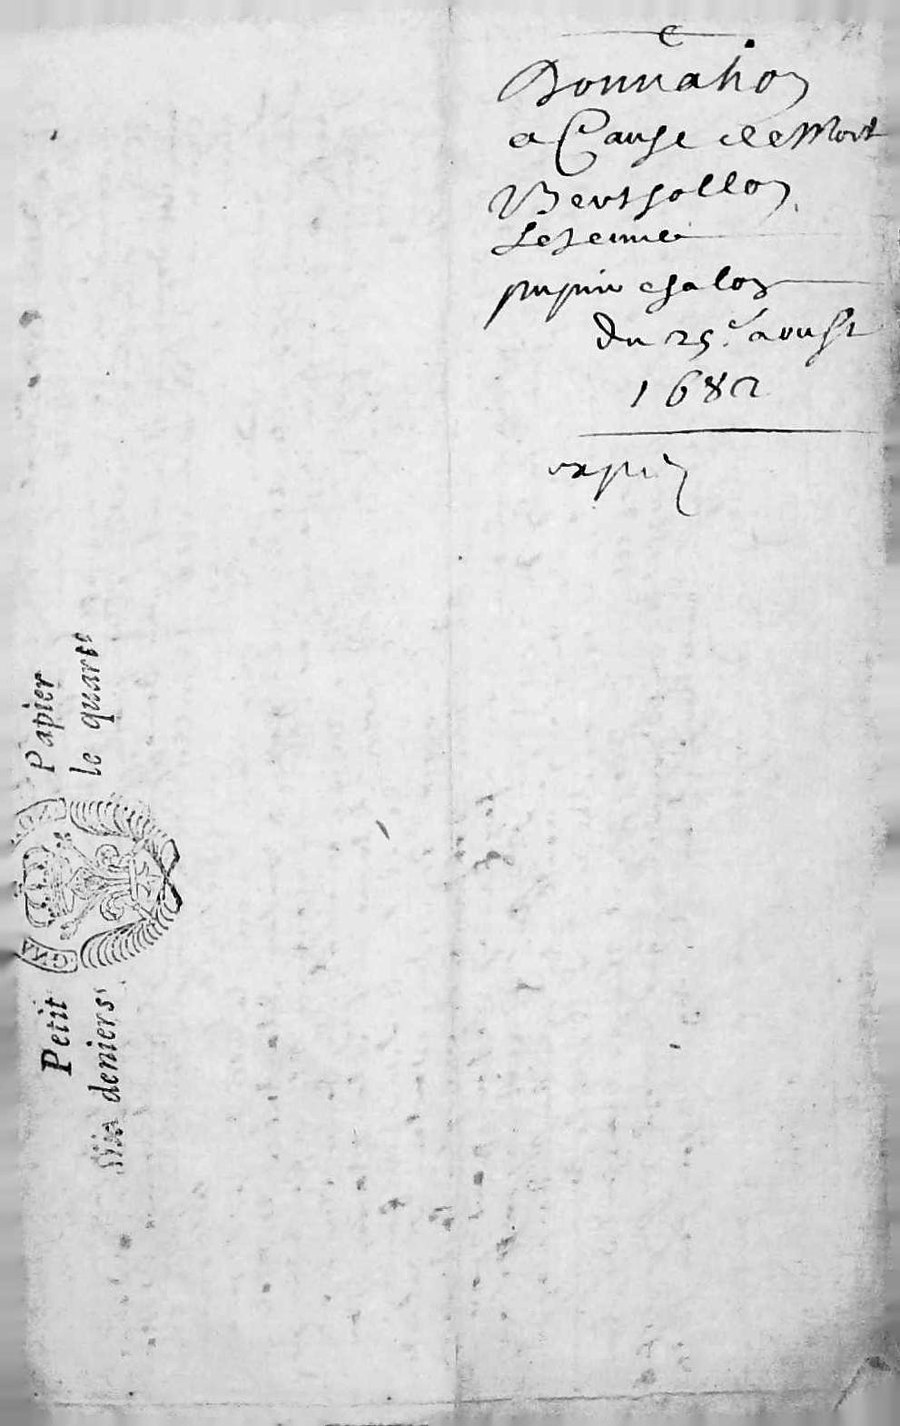 Donnation
a Cause de Mort
Berthollon
Lesenne
pupin chalon
du 25e aoust
1682
expié
Petit Papier
Six deniers le quart